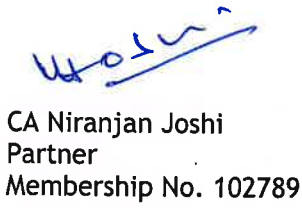 CA Niranjan Joshi
Partner
Membership No. 102789